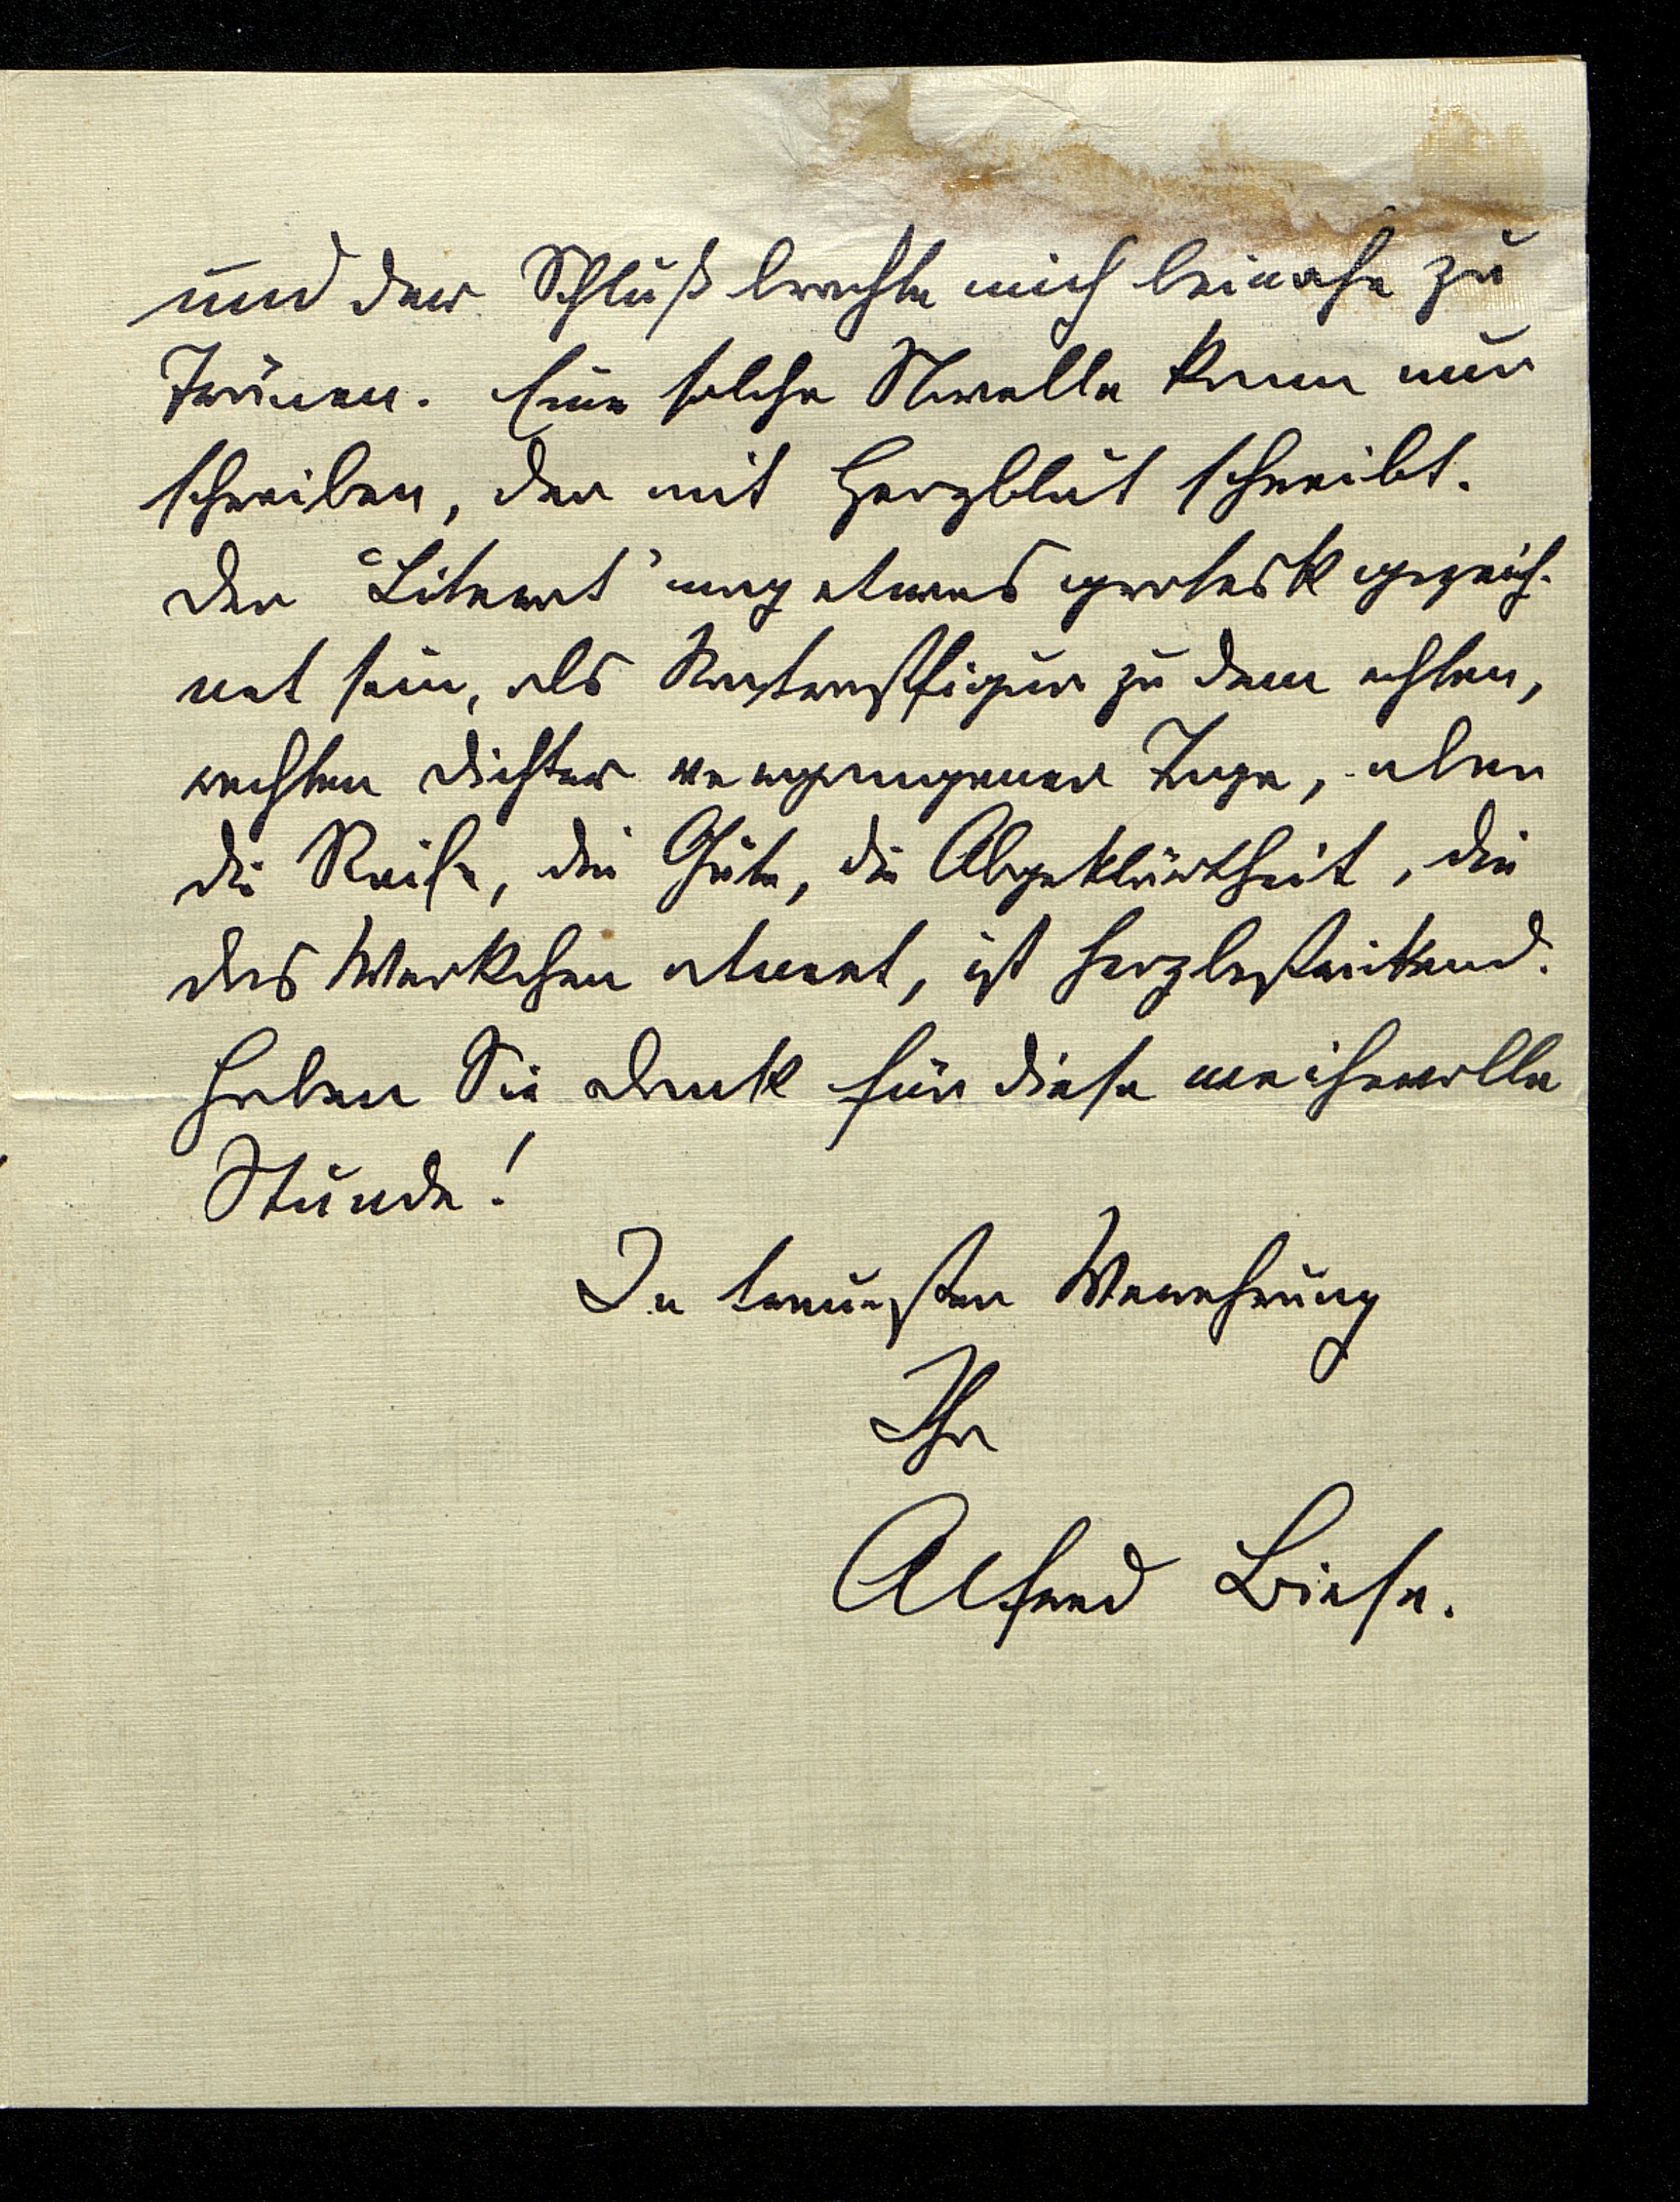 und der Schluß brachte mich beinahe zu
Tränen. Eine solche Novelle kann nur
schreiben, der mit Herzblut schreibt.
Der "Literat" mag etwas grotesk gezeich-
net sein, als Kontrastfigur zu dem echten,
rechten Dichter vergangener Tage, aber
die Reife, die Güte, die Abgeklärtheit, die
das Werkchen atmet, ist herzbestrickend.
Haben Sie Dank für diese weihevolle
Stunde!
In treuester Verehrung
Ihr
Alfred Biese.